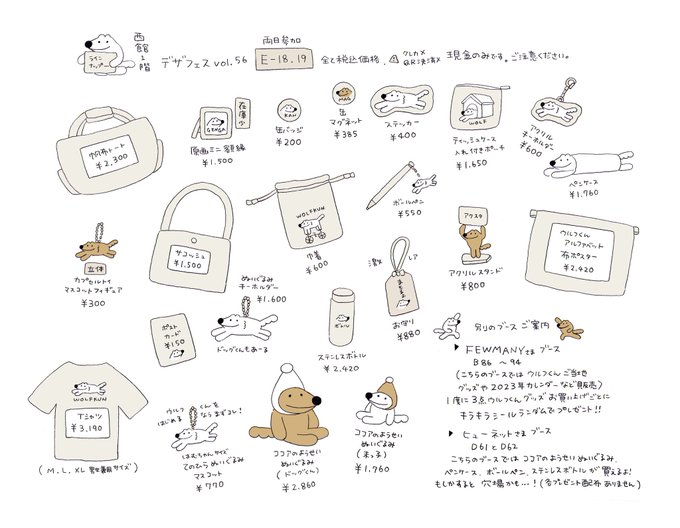 西館1階
ラインナップー
デザフェス vol.56
両日参加
E-18,19
全て税込価格、⚠クレカ✕ QR決済✕ 現金のみです。ご注意ください。
帆布トート
¥2,300
在庫少
GENGA
原画ミニ額縁
¥1,500
KAN
缶バッジ
¥200
MAG
缶マグネット
¥385
ステッカー
¥400
WOLF
ティッシュケース
入れ付きポーチ
¥1,650
アクリル
キーホルダー
¥600
ペンケース
¥1,760
立体
カプセルトイ
マスコットフィギュア
¥300
サコッシュ
¥1,500
WOLFKUN
巾着
¥600
ボールペン
¥550
激レア
お守り
¥880
アクスタ
アクリルスタンド
¥800
ウルフくん
アルファベット
布ポスター
¥2,420
ポストカード
¥150
ぬいぐるみ
キーホルダー
¥1,600
ドッグくんもあーる
ボトル
ステンレスボトル
¥2,420
WOLFKUN
Tシャツ
¥3,190
(M、L、XL 男女兼用サイズ)
ウルフくんを
はじめるならまずコレ!
はむちゃんサイズ
てのひらぬいぐるみ
マスコット
¥770
ココアのようせい
ぬいぐるみ
(ドッグくん)
¥2,860
ココアのようせい
ぬいぐるみ
(末っ子)
¥1,760
別のブースご案内
▶ FEWMANYさまブース
B86 〜 94
(こちらのブースではウルフくんご当地
グッズや2023年カレンダーなど販売)
1度に3点ウルフくんグッズお買い上げごとに
キラキラシールランダムでプレゼント!!
▶ ヒューネットさまブース
D61とD62
こちらのブースではココアのようせいぬいぐるみ、
ペンケース、ボールペン、ステンレスボトルが買えるよ!
もしかすると穴場かも…!(各プレゼント配布ありません)